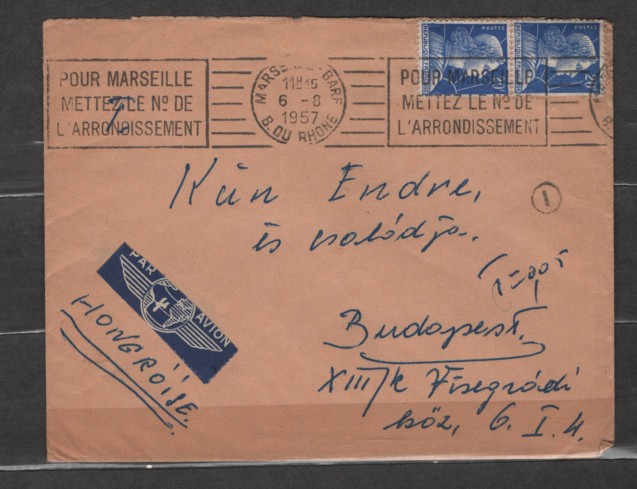 POSTES POSTES
POUR MARSEILLE
METTEZ LE Nº DE
L'ARRONDISSEMENT
MARSEILLE GARE
11H15
6 - 8
1957
B. DU RHONE
POUR MARSEILLE
METTEZ LE Nº DE
L'ARRONDISSEMENT
Kün Endre,
és családja.
1
PAR AVION
HONGRÖISE.
Budapest.
XIII/k Visegrádi
köz, 6. I. 4.